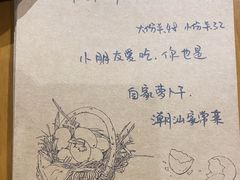 大份羊48 小份羊32
小朋友爱吃,你也是
自家萝卜干,
潮汕家常菜